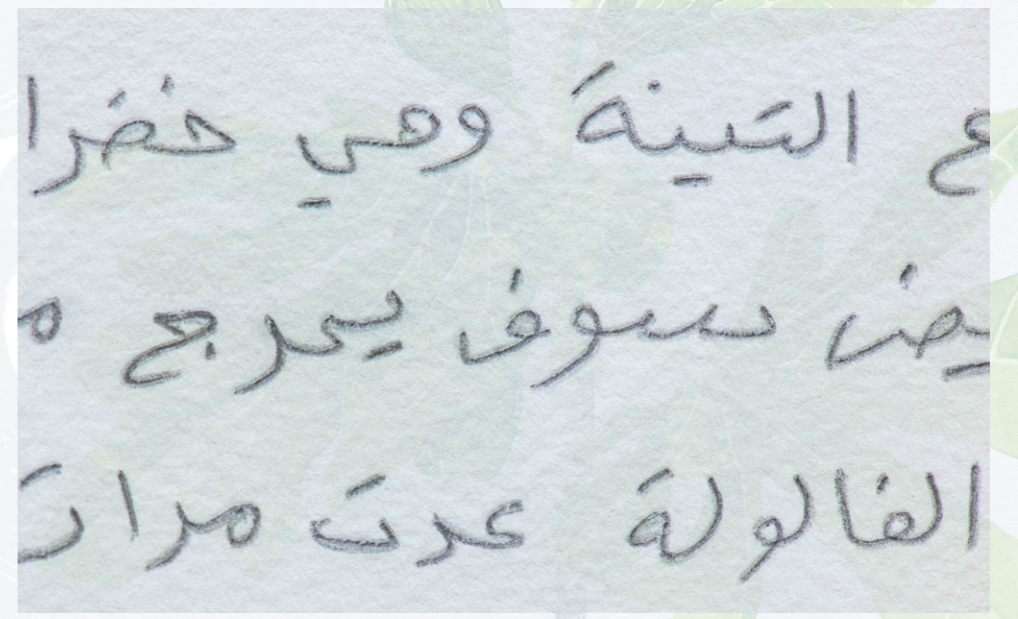 ع التينة وهي خضرا
يض سوف يخرج م
الفالولة عدت مرات